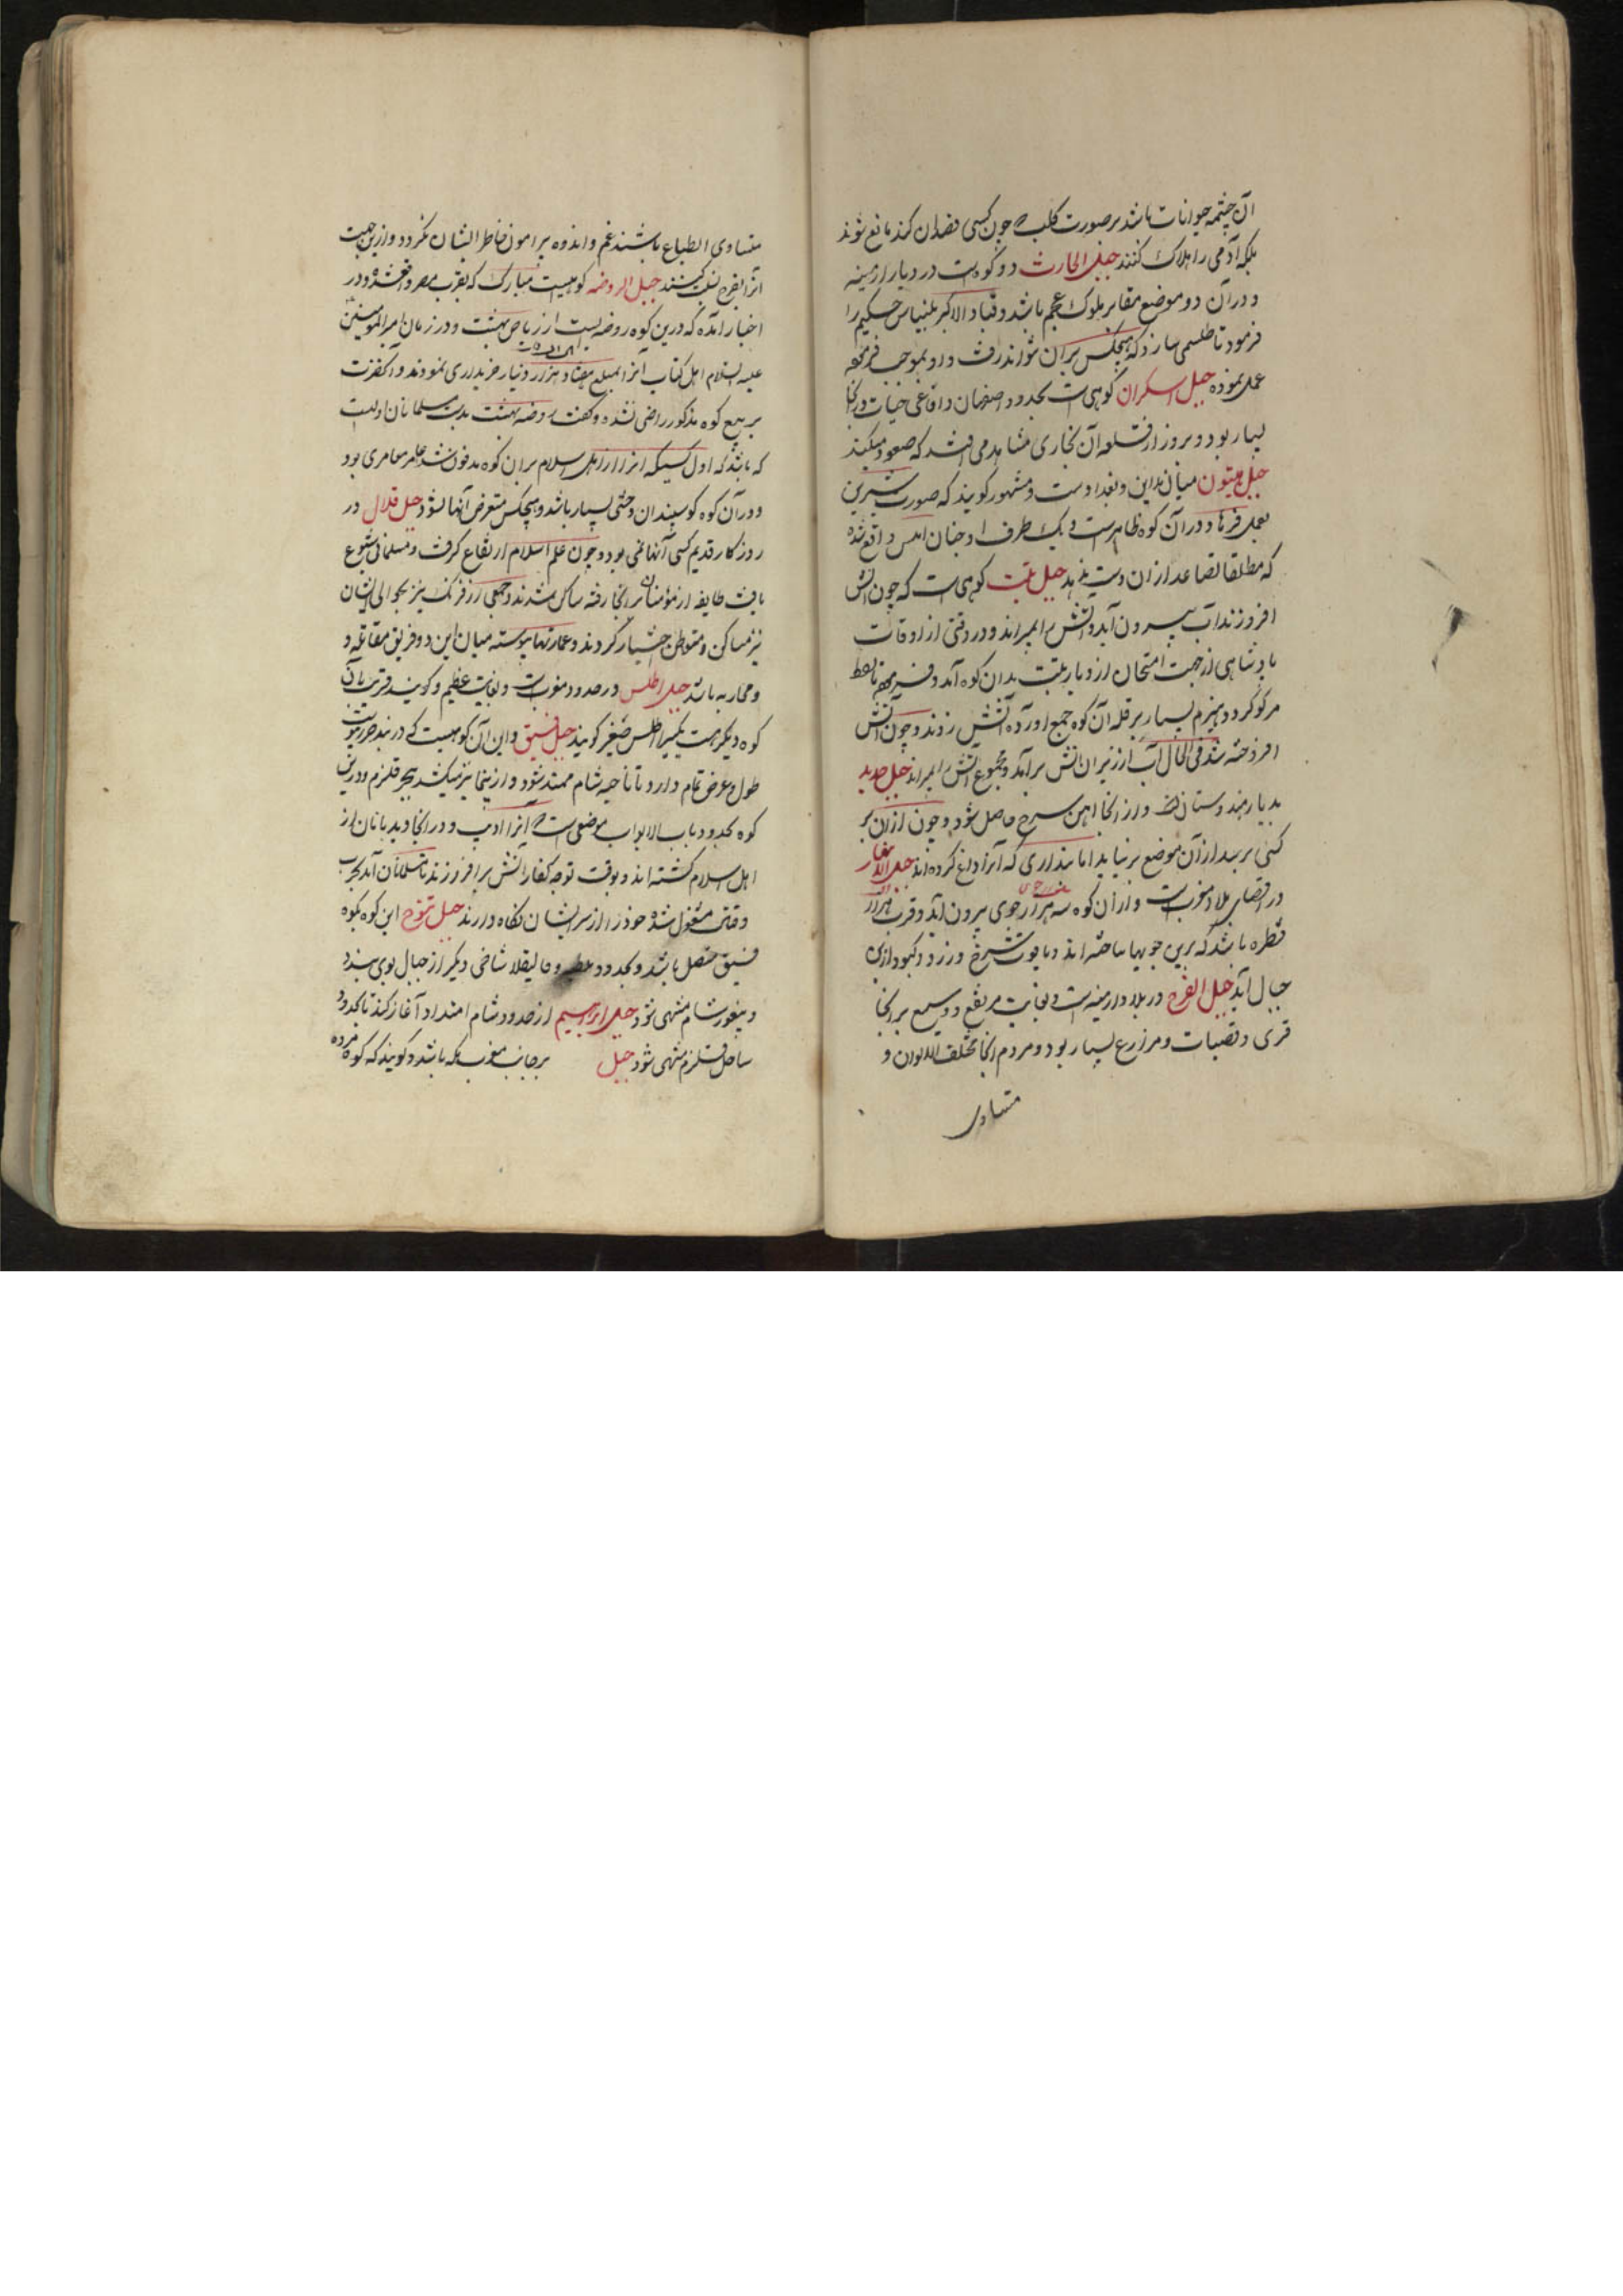 آن چشمه حیوانات باشد بر صورت کلب که چون کسی قصد ان کند مانع شوند
بلکه آدمی را هلاک کنند جبل الحارث دو کوه است در دیار ارمینه
و در آن دو موضع مقابر ملوک عجم باشد و قباد الاکبر بلنیاس حکیم را
فرمود تا طلسمی سازد که هیچکس بر ان نتواند رفت و او بموجب فرموده
عمل نموده جبل السکران کوهی است بحدود اصفهان و افاعی حیات در انجا
بسیار بود و بروز از قله آن بخاری مشاهد می افتد که صعود میکند
جبل بیستون میان مداین و بغداد است و مشهور کویند که صورت شیرین
بعمل فرهاد در آن کوه ظاهر است و یک طرف او چنان املس واقع شده
که مطلقا تصاعد از ان دست ندهد جبل تبت کوهی است که چون اتش
افروزند آب بیرون آید و اتش را بمیراند و در وقتی از اوقات
پادشاهی از جهت امتحان از دیار تبت بدان کوه آمد و فرمود تا نفط
مر کوکرد و هیزم بسیار بر قله آن کوه جمع اورده آتش زدند و چون اتش
افروخته شد فی الحال آب از زیر ان اتش برآمد و مجموع اتش را بمیراند جبل حدید
بدیار هندوستان است و از انجا اهن سرخ حاصل شود و چون از ان بر
کسی برسد از آن موضع بر نیاید اما بمقداری که آنرا داغ کرده اند جبل
در اقصای بلاد مغرب است و از ان کوه سه هزار جوی بیرون آید و قرب هزار
قنطره باشد که برین جویها ساخته اند و یاقوت سرخ و زرد و کبود ازین
جبال آید جبل الفرح در بلاد ارمینه است و بغایت مرتفع و وسیع بر انجا
قری و قصبات و مزارع بسیار بود و مردم انجا مختلف الالوان و
متساوی
متساوی الطباع باشند غم و اندوه پیرامون خاطر ایشان نکردد و ازین جهت
آنرا بفرح نسبت کنند جبل الروضه کوهیست مبارک که بقرب مصر واقع شده و در
اخبار آمده که درین کوه روضه ایست از ریاض بهشت و در زمان امیر المومنین
علیه السلام اهل کتاب آنرا بمبلغ هفتاد هزار دینار خریداری نمودند و آنحضرت
بر بیع کوه مذکور راضی نشده و کفت روضه بهشت بدست مسلمانان اولیست
که باشد که اول کسیکه از اهل اسلام بر ان کوه مدفون شد عامر معامری بود
و در آن کوه کوسپندان وحشی بسیار باشد و هیچکس متعرض آنها نشود جبل قلال در
روزکار قدیم کسی آنجا نمی بود و چون علم اسلام ارتفاع کرفت و مسلمانی شیوع
یافت طایفه از مؤمنان بر انجا رفته ساکن شدند و جمعی از فرنک نیز بحوالی ایشان
نیز مساکن و متوطن اختیار کردند و عمارتها پیوسته میان این دو فریق مقاتله و
و محاربه باشد جبل اطلس در حدود مغرب است و بغایت عظیم و کویند قریب بآن
کوه دیکر هست که اطلس صغیر کویند جبل فسیق و این آن کوهیست که در بند
طول و عرض تمام دارد و تا ناحیه شام ممتد شود و از نیجا نیز میکشد بحر قلزم و درین
کوه بحدود باب الابواب موضعی است که آنرا ادیب و در انجا دیدبانان از
اهل اسلام کشته اند و بوقت توجه کفار اتش بر افروزند تا مسلمانان آمده بحرب
وقتال مشغول شده خود را از سر ایشان نکاه دارند جبل تنوخ این کوه بکوه
فسیق متصل باشد و بحدود ملطیه و قالیقلا شاخی دیکر از جبال بوی پیوندد
و بثغور شام منتهی شود جبل ابراسیم از حدود شام امتداد آغاز کند تا بحدود
ساحل قلزم منتهی شود جبل بر جانب مغرب مکه باشد و کویند که کوه مرده